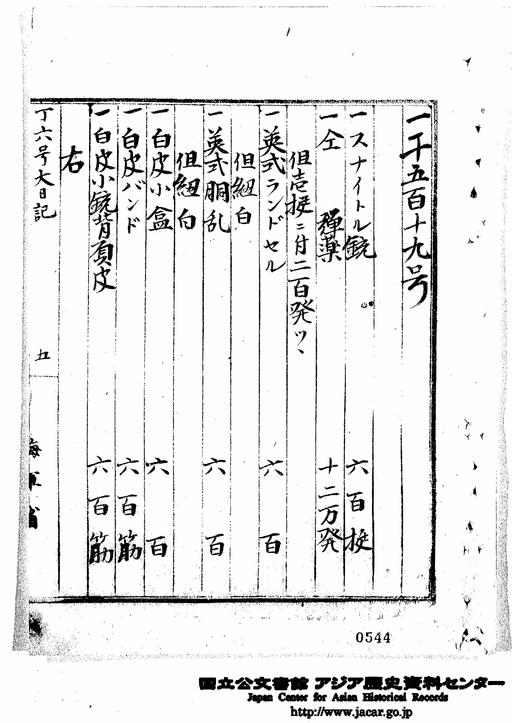 一千五百十九号
一スナイトル銃 六百挺
一仝 弾薬 十二万発
但壱挺ニ付二百発ツヽ
一英式ランドセル 六百
但紐白
一英式胴乱 六百
但紐白
一白皮小盒 六百
一白皮バンド 六百筋
一白皮小銃背負皮 六百筋
右
丁六号大日記 五 海軍省
0544
国立公文書館 アジア歴史資料センター
Japan Center for Asian Historical Records
http://www.jacar.go.jp